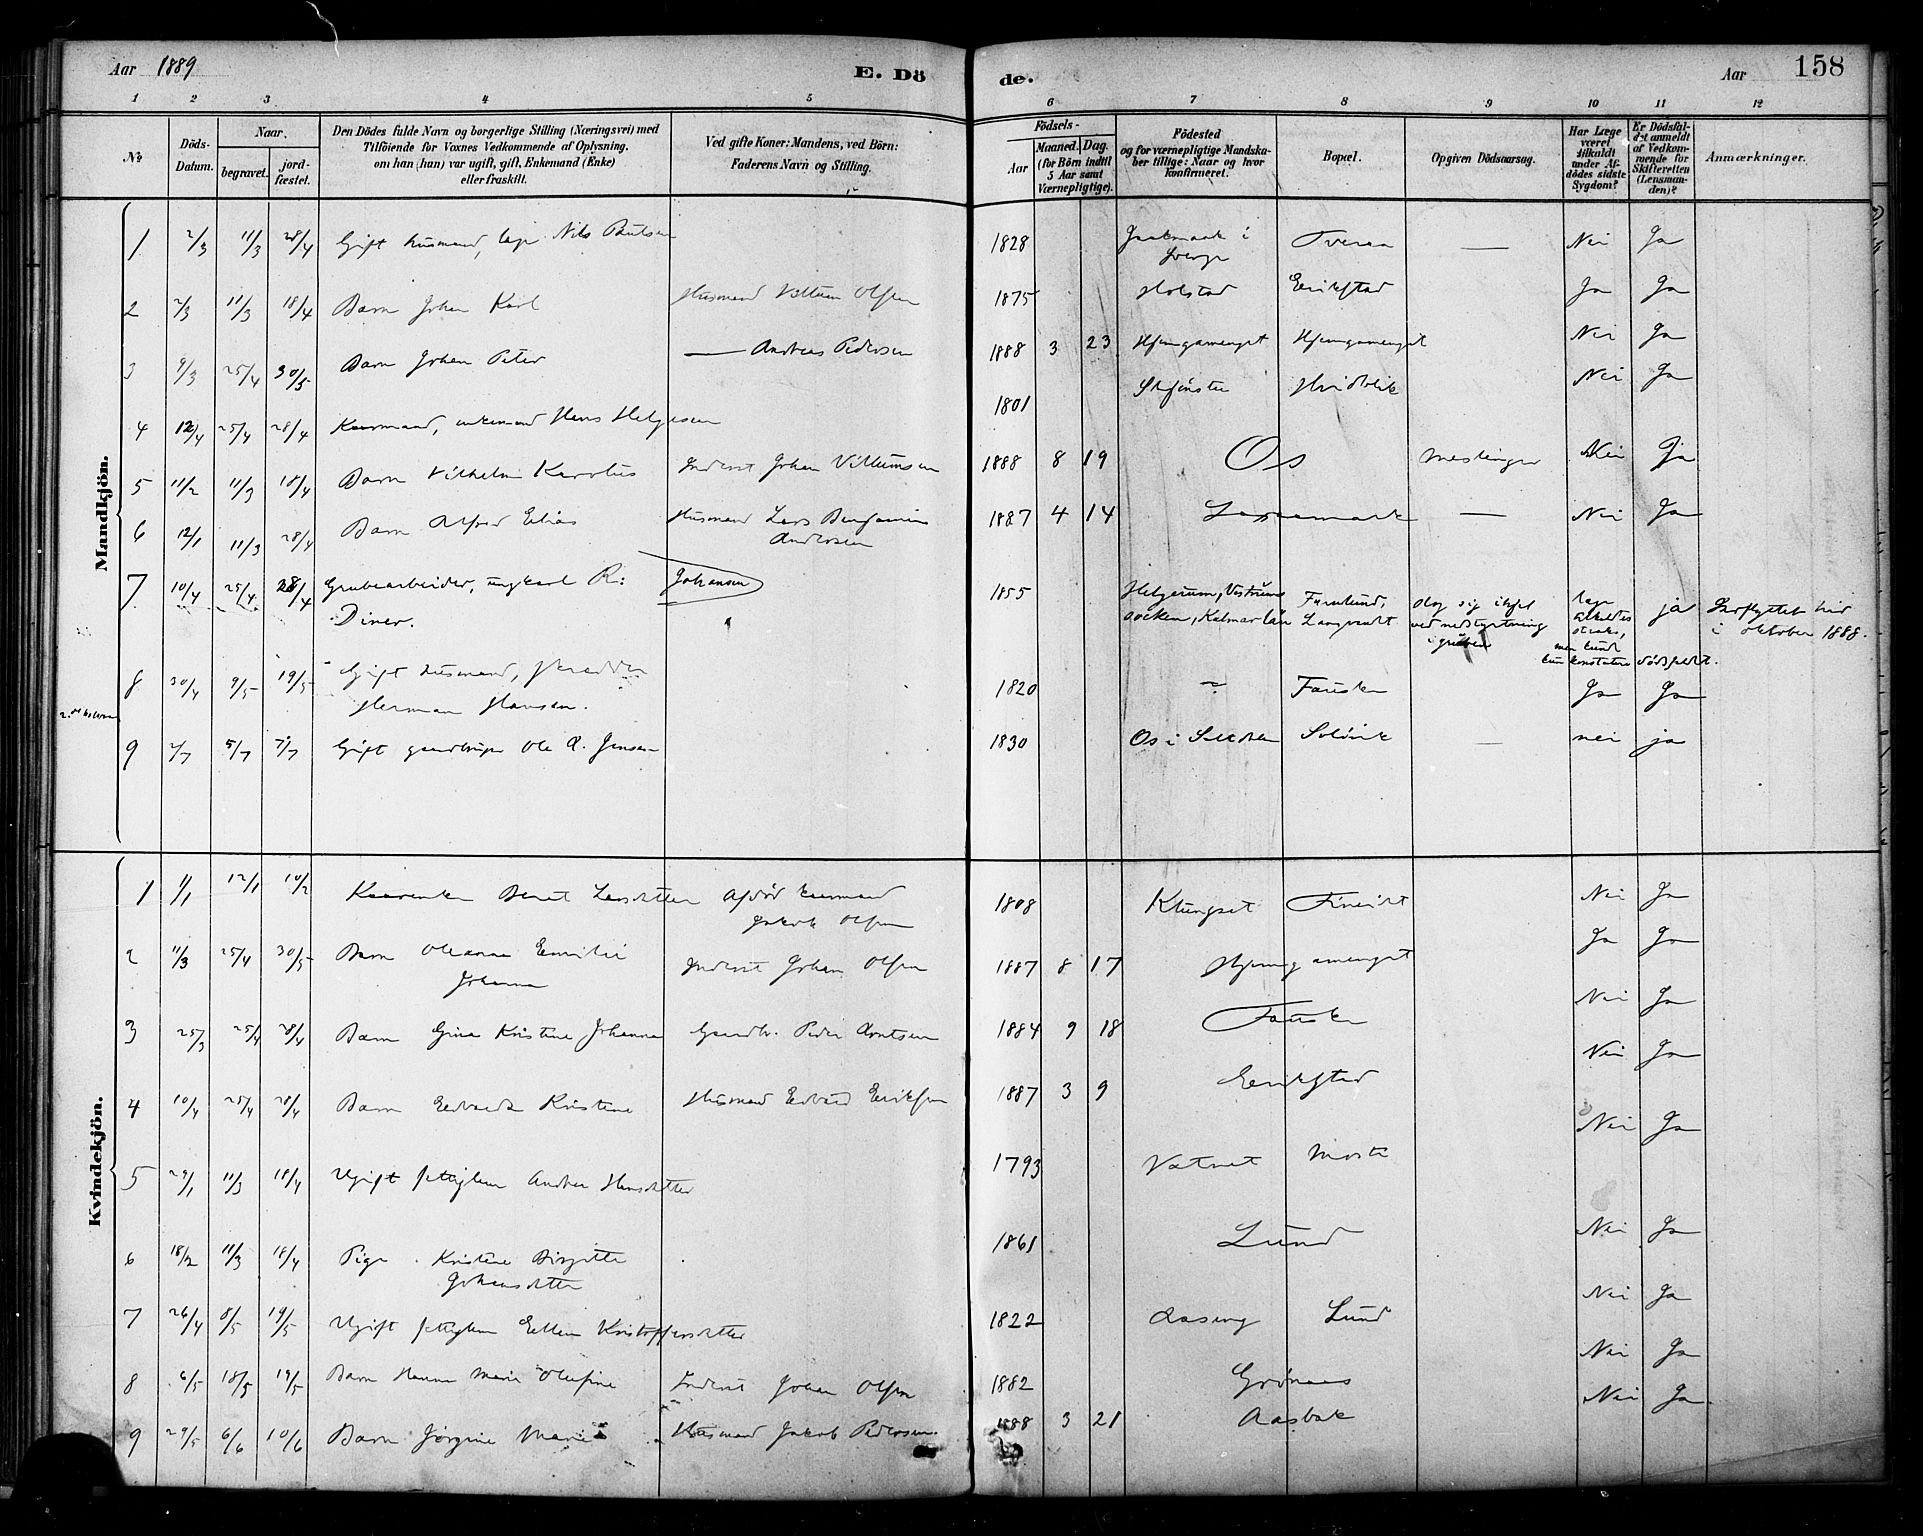 Aar 1889
E. Dö
de.
Aar
158
1 2 3 4 5 6 7 8 9 10 11 12
No
Döds-
Datum.
Naar.
begravet.
jord-
fæstet.
Den Dödes fulde Navn og borgerlige Stilling (Næringsvei) med
Tilföiende for Voxnes Vedkommende af Oplysning.
om han (hun) var ugift, gift, Enkemand (Enke)
eller fraskilt.
Ved gifte Koner: Mandens, ved Börn:
Faderens Navn og Stilling.
Födsels-
Aar
Maaned. Dag.
(for Börn indtil
5 Aar samt
Værnepligtige).
Födested
og for værnepligtige Mandska-
ber tillige: Naar og hvor
konfirmeret.
Bopæl.
Opgiven Dödsaarsag.
Har Læge
været
tilkaldt
under Af-
dödes sidste
Sygdom?
Er Dödsfal-
det anmeldt
af Vedkom-
mende for
Skifteretten
(Lensman-
den)?
Anmærkninger.
Mandkjön.
1 2/3 11/3 28/4 Gift husmand, lap Nils 1828 i Tveraa — Nei Ja
Sverge
2 2/3 11/3 18/4 Barn Johan Karl Husmand Villum Olsen 1875 Holstad Erikstad Ja Ja
3 9/3 25/4 30/5 Barn Johan Peter — Andreas Pedersen 1888 3 23 Hjemgamenget Hjemgamenget Nei Ja
4 12/4 25/4 28/4 Kaarmand, enkemand Hans Helgesen 1801 Skjönstu Hvidblik Nei Ja
5 11/2 11/3 18/4 Barn Vilhelm Karolius Inderst Johan Villumsen 1888 8 19 Os Meslinger Nei Ja
6 12/1 11/3 28/4 Barn Alfred Elias Husmand Lars Benjamin
Andersen 1887 4 14 — Nei Ja
7 10/4 25/4 28/4 Grubearbeider, ungkarl R: Johansen
Diner. 1855 Helgerum, Vestrums
socken, Kalmar län Furulund,
Langvandt slog sig ihjel
ved nedstyrtning
i gruben Læge
tilkaldtes
straks,
men kunde
kun konstatere dödsfaldet. ja Indflyttet hid
i oktober 1888.
8 30/4 9/5 19/5 Gift husmand, skrædder
Herman Hansen. 1820 ~ Fauske Ja Ja
9 2/7 5/7 7/7 Gift gaardbruger Ole A. Jensen 1830 Os i Salten Solövik — nei ja
Kvindekjön.
1 1/1 12/1 10/2 Kaarenke Beret Larsdatter Afdöd kaarmand
Jakob Olsen 1808 Klungset Fineidet Nei Ja
2 11/3 25/4 30/5 Barn Oleanna Emilie
Johanna Inderst Johan Olsen 1887 8 17 Hjemgamenget Ja Ja
3 25/3 25/4 28/4 Barn Gina Kristine Johanna Gaardbr. Peder Arntsen 1884 9 18 Fauske Nei Ja
4 10/4 25/4 28/4 Barn Edvarda Kristine Husmand Edvard Eriksen 1887 3 9 Erikstad Nei Ja
5 29/1 11/3 18/4 Ugift fattiglem Andrea Hansdatter 1793 Vatnet Moste Nei Ja
6 18/2 11/3 18/4 Pige Kristine Birgitte
Johansdatter 1861 Lund Nei Ja
7 26/4 8/5 19/5 Ugift fattiglem Ellen Kristoffersdatter 1822 Aaseng Lund Nei Ja
8 6/5 18/5 19/5 Barn Hanna Marie Olufine Inderst Johan Olsen 1882 Grönaas Nei Ja
9 29/5 6/6 10/6 Barn Jörgine Marie Husmand Jakob Pedersen. 1888 3 21 Aasbak Nei Ja